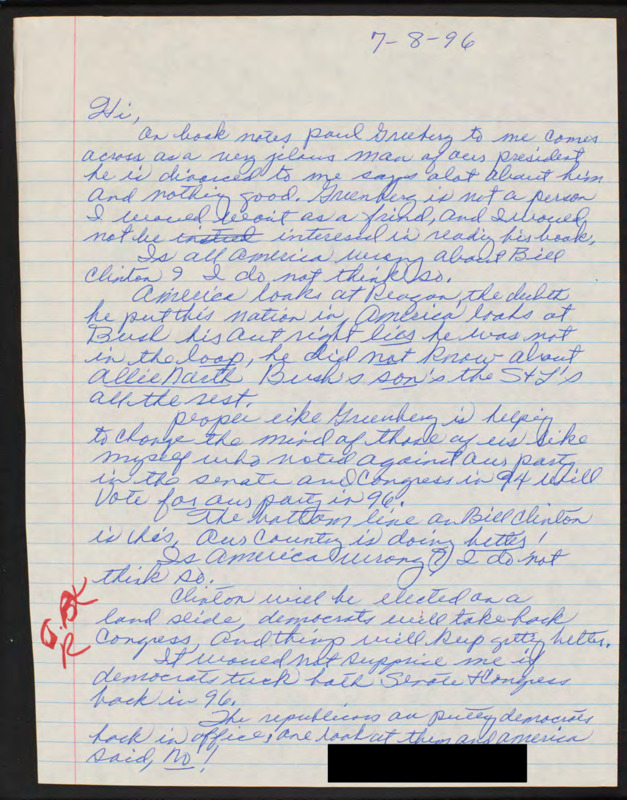 7-8-96
Hi,
On book notes paul Greeberg to me comes
across as a very jilous man of our president
he is divorced to me says alot about him
and nothing good. Greenberg is not a person
I wouved want as a frind, and I wouved
not be interesed in readig his book.
Is all America wrong about Bill
Clinton? I do not think so.
America looks at Reagon, the debth
he put this nation in, America looks at
Bush his out right lies he was not
in the loop, he did not know about
allie North Bush's son's the S+L's
all the rest.
peoper like Greenberg is helpig
to change the mind of those of us like
myself who voted against our party
in the senate and Congress in 94 will
Vote for our party in 96.
The bottom line on Bill Clinton
is this, our Country is doing better!
Is America wrong? I do not
think so.
Clinton will be elected on a
land slide, democrats will take back
Congress, and things will keep getty better.
It wouved not supprice me if
democrats tuck both Senate + Congress
back in 96.
The republicons are putty democrats
back in office, one look at them and america
said, No!